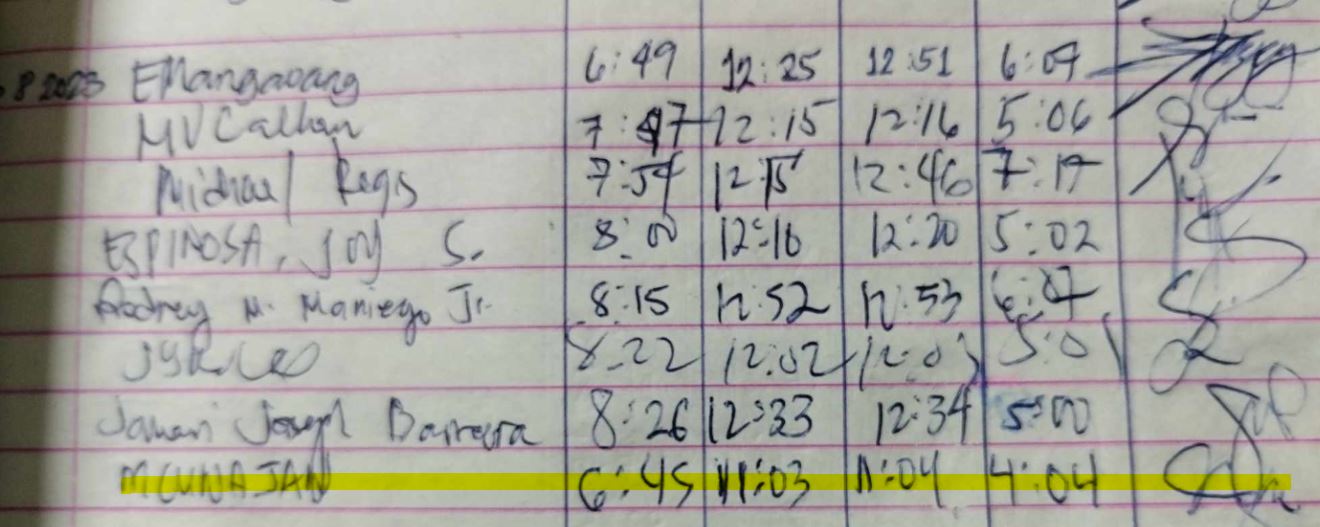 8 2023 EMangaoang 6:49 12:25 12:51 6:07
MV Calhan 7:47 12:15 12:16 5:06
Michael Regis 7:54 12:15 12:46 7:17
ESPINOSA, JOY S. 8:00 12:16 12:20 5:02
Rodney M. Maniego Jr. 8:15 12:52 12:53 6:07
8:22 12:02 12:03 5:01
Joseph Barrera 8:26 12:33 12:34 5:00
6:45 11:03 11:04 4:04